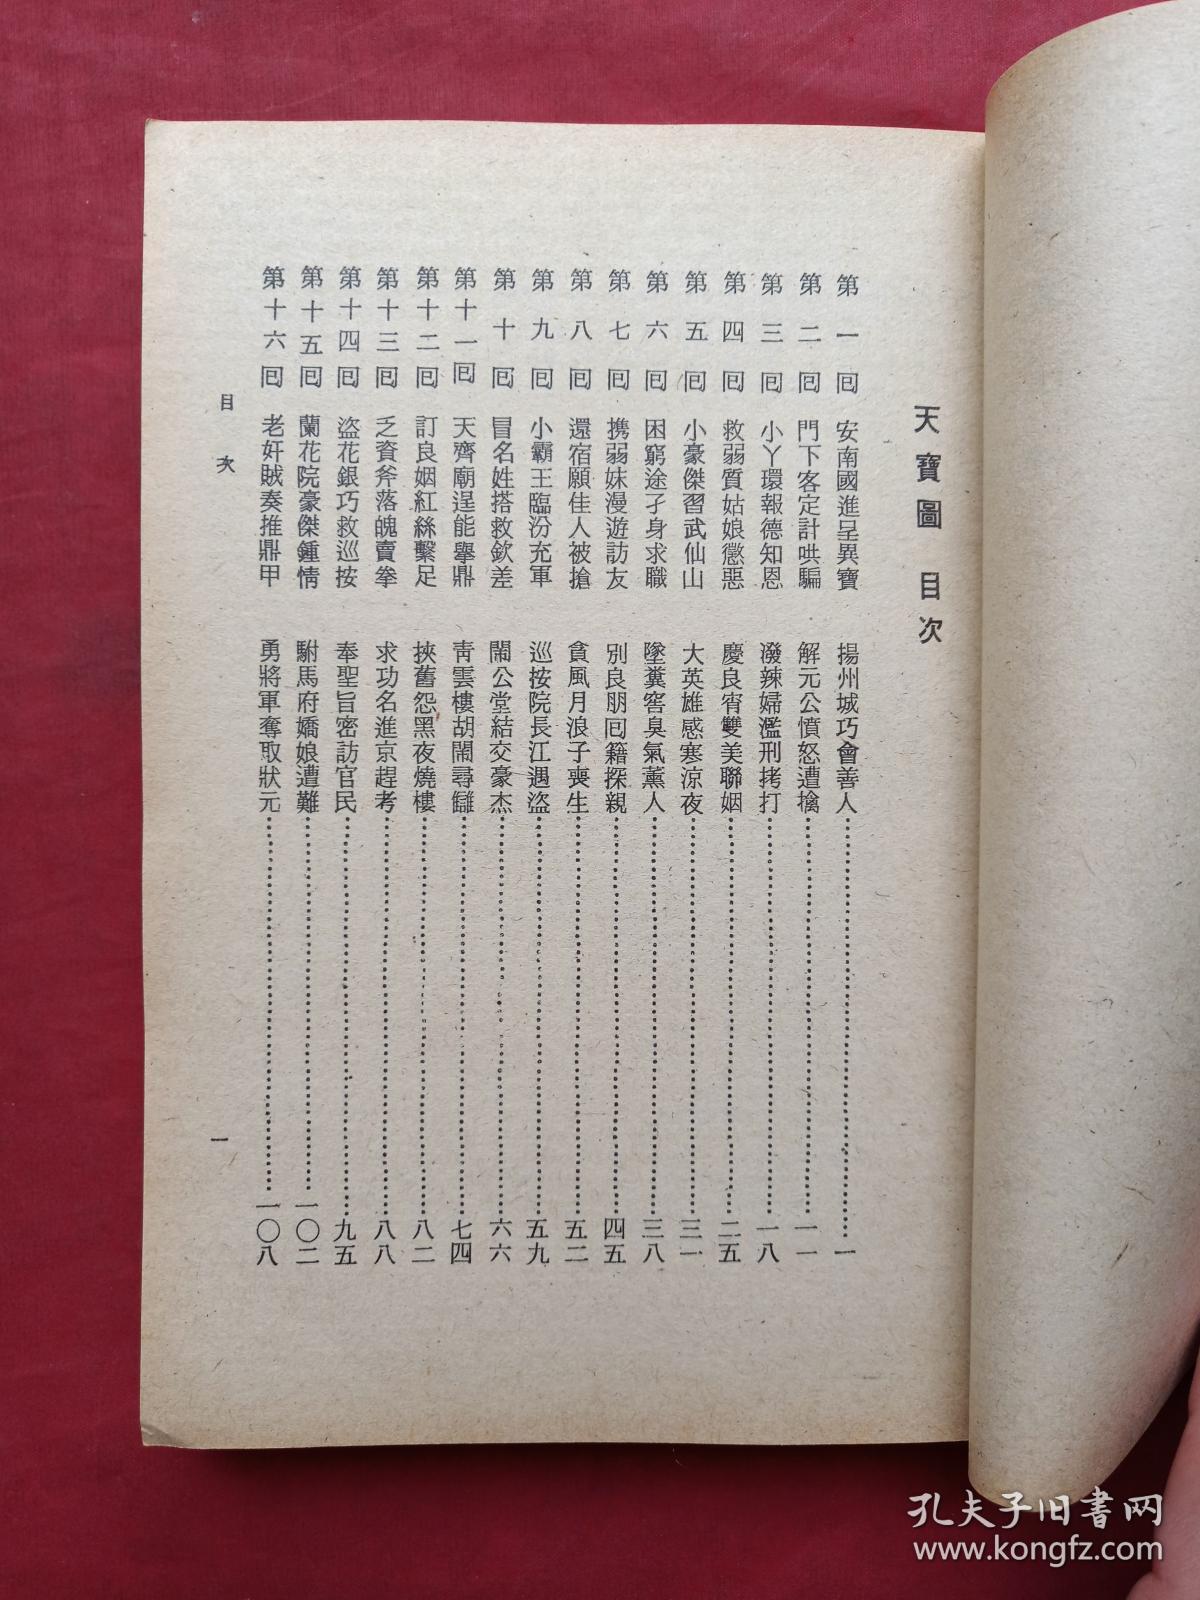 天寶圖　目次
第一回　安南國進呈異寶　揚州城巧會善人……一
第二回　門下客定計哄騙　解元公憤怒遭擒……一一
第三回　小丫環報德知恩　潑辣婦濫刑拷打……一八
第四回　救弱質姑娘懲惡　慶良宵雙美聯姻……二五
第五回　小豪傑習武仙山　大英雄感寒涼夜……三一
第六回　困窮途孑身求職　墜糞窖臭氣薰人……三八
第七回　携弱妹漫遊訪友　別良朋回籍探親……四五
第八回　還宿願佳人被搶　貪風月浪子喪生……五二
第九回　小霸王臨汾充軍　巡按院長江遇盜……五九
第十回　冒名姓搭救欽差　鬧公堂結交豪杰……六六
第十一回　天齊廟逞能舉鼎　青雲樓胡鬧尋讎……七四
第十二回　訂良姻紅絲繫足　挾舊怨黑夜燒樓……八二
第十三回　乏資斧落魄賣拳　求功名進京趕考……八八
第十四回　盜花銀巧救巡按　奉聖旨密訪官民……九五
第十五回　蘭花院豪傑鍾情　駙馬府嬌娘遭難……一〇二
第十六回　老奸賊奏推鼎甲　勇將軍奪取狀元……一〇八
目次
一
孔夫子旧書网
www.kongfz.com